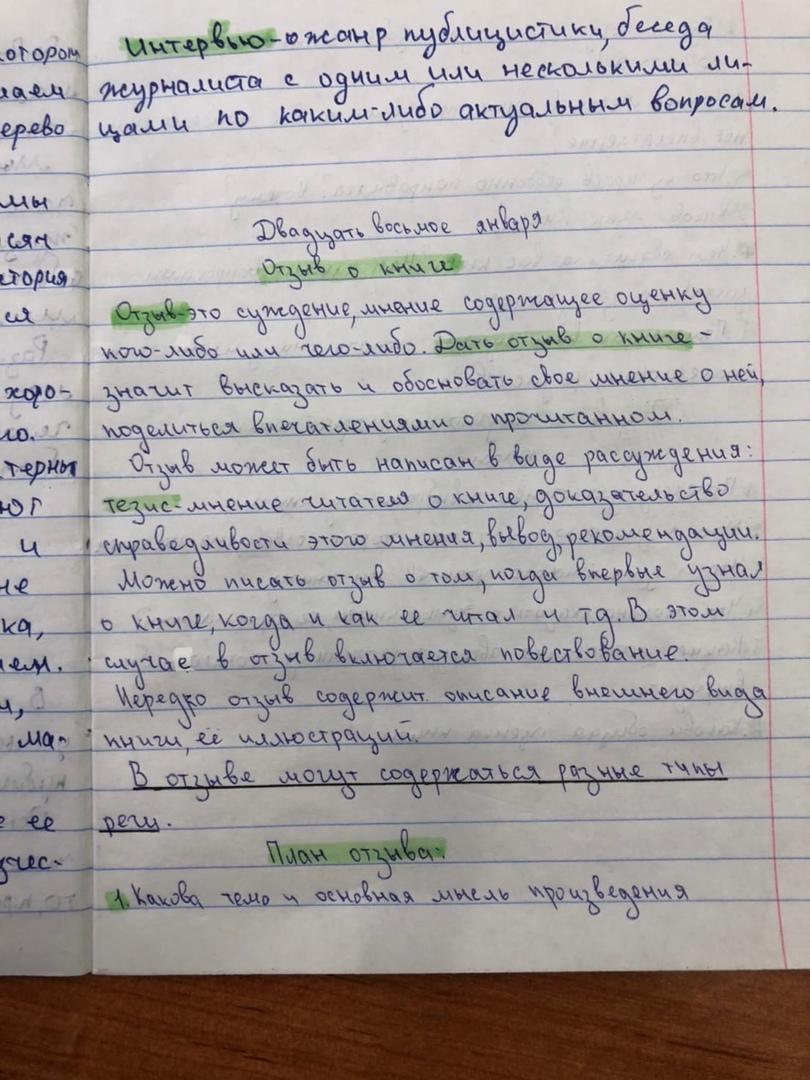 Интервью-жанр публицистики, беседа
журналиста с одним или несколькими ли-
цами по каким-либо актуальным вопросам.
Двадцать восьмое января
Отзыв о книге
Отзыв-это суждение, мнение содержащее оценку
кого-либо или чего-либо. Дать отзыв о книге -
значит высказать и обосновать свое мнение о ней,
поделиться впечатлениями о прочитанном.
Отзыв может быть написан в виде рассуждения:
тезис-мнение читателя о книге, доказательство
справедливости этого мнения, вывод, рекомендации.
Можно писать отзыв о том, когда впервые узнал
о книге, когда и как ее читал и тд. В этом
случае в отзыв включается повествование.
Нередко отзыв содержит описание внешнего вида
книги, её иллюстраций.
В отзыве могут содержаться разные типы
речи.
План отзыва:
1. Какова тема и основная мысль произведения
котором
мы
хоро-
го.
и
не
ка,
ма-
ее